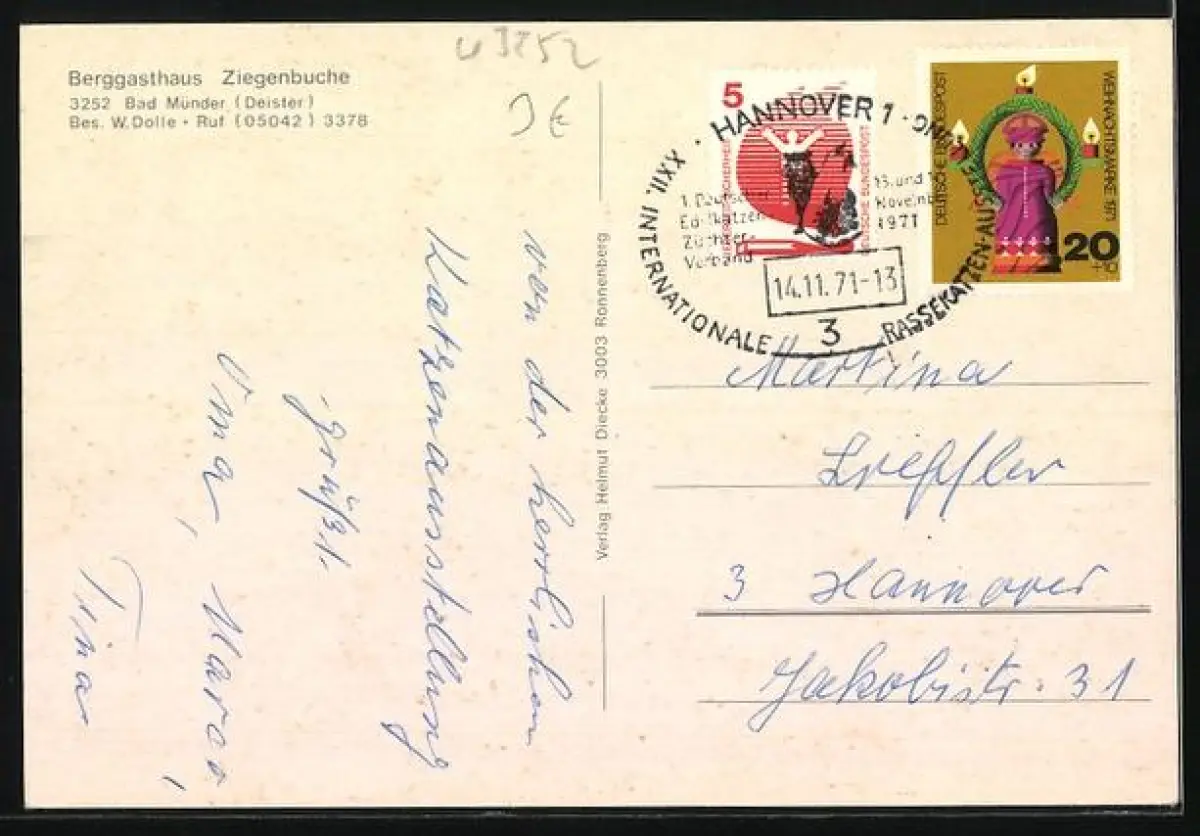 U 3252
3 €
Berggasthaus Ziegenbuche
3252 Bad Münder (Deister)
Bes. W. Dolle • Ruf (05042) 3378
von der herrlichen
Katzenausstellung
grüßt.
Oma, Marco,
Tina
Verlag Helmut Diecke 3003 Ronnenberg
5
DEUTSCHE BUNDESPOST
DEUTSCHE BUNDESPOST
WEIHNACHTSMARKE 1971
20
+10
HANNOVER 1
XXII. INTERNATIONALE RASSEKATZEN-AUSSTELLUNG
1. Deutscher
Edelkatzen
Züchter-
Verband
13. und
November
1971
14.11.71-13
3
Martina
3 Hannover
Jakobistr. 31